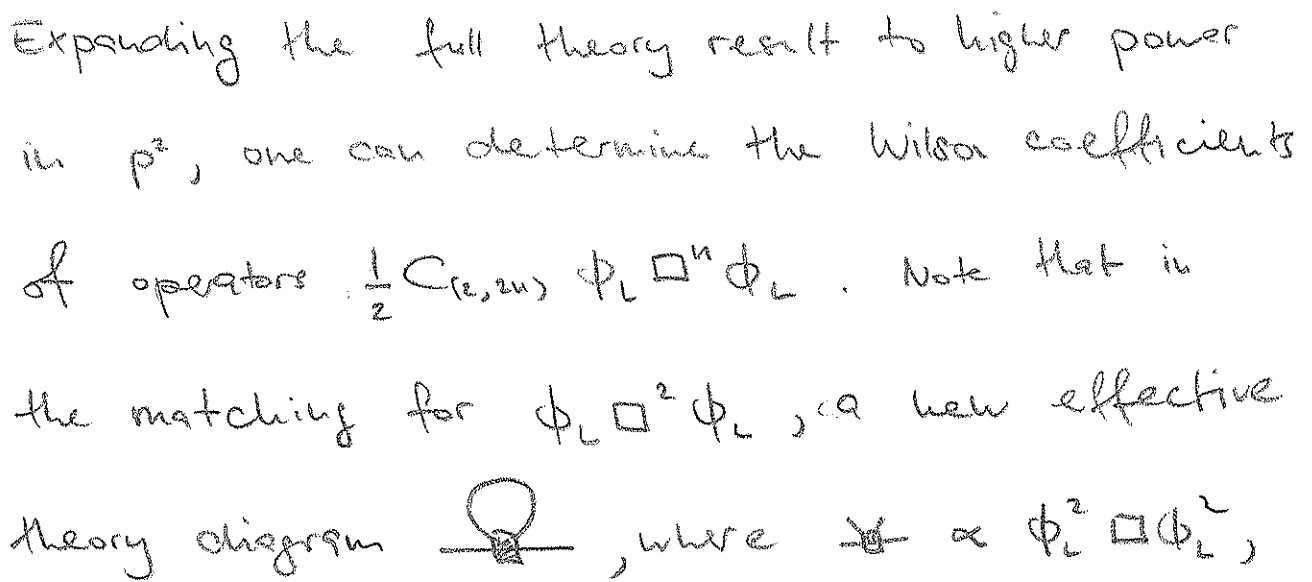 Expanding the full theory result to higher power
in p², one can determine the Wilson coefficients
of operators ½ C₍₂,₂ₙ₎ ϕ_L □ⁿ ϕ_L. Note that in
the matching for ϕ_L □² ϕ_L, a new effective
theory diagram , where ∝ ϕ_L² □ ϕ_L²,